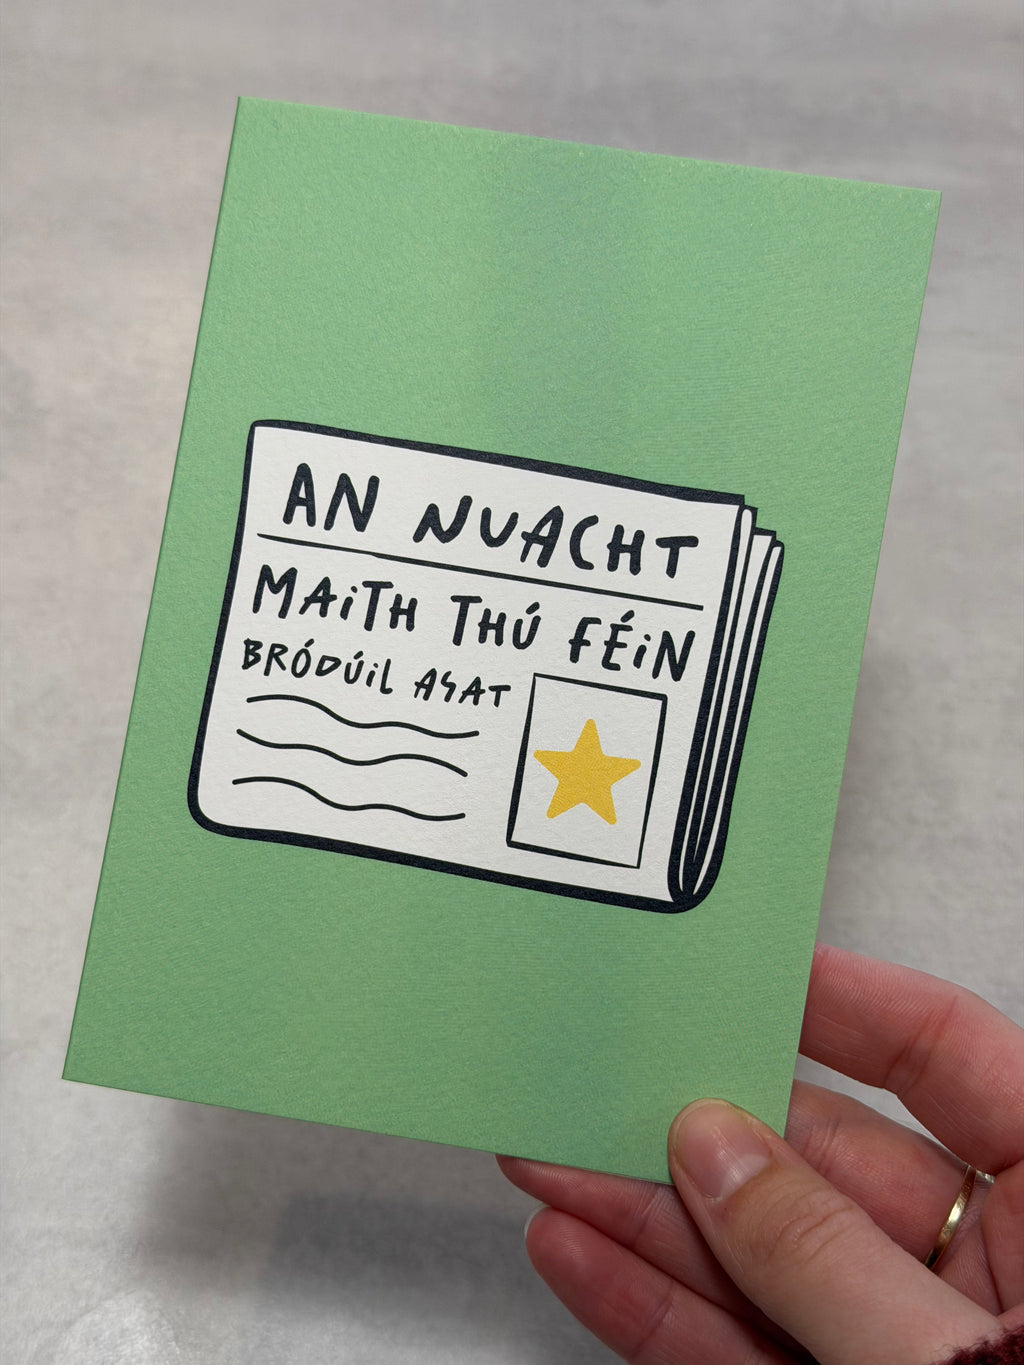 AN NUACHT
MAiTH THÚ FÉiN
BRÓDÚiL ASAT